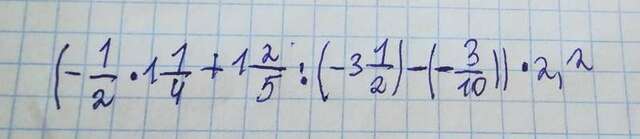 (-1/2 · 1 1/4 + 1 2/5 : (-3 1/2) - (-3/10)) · 2,2